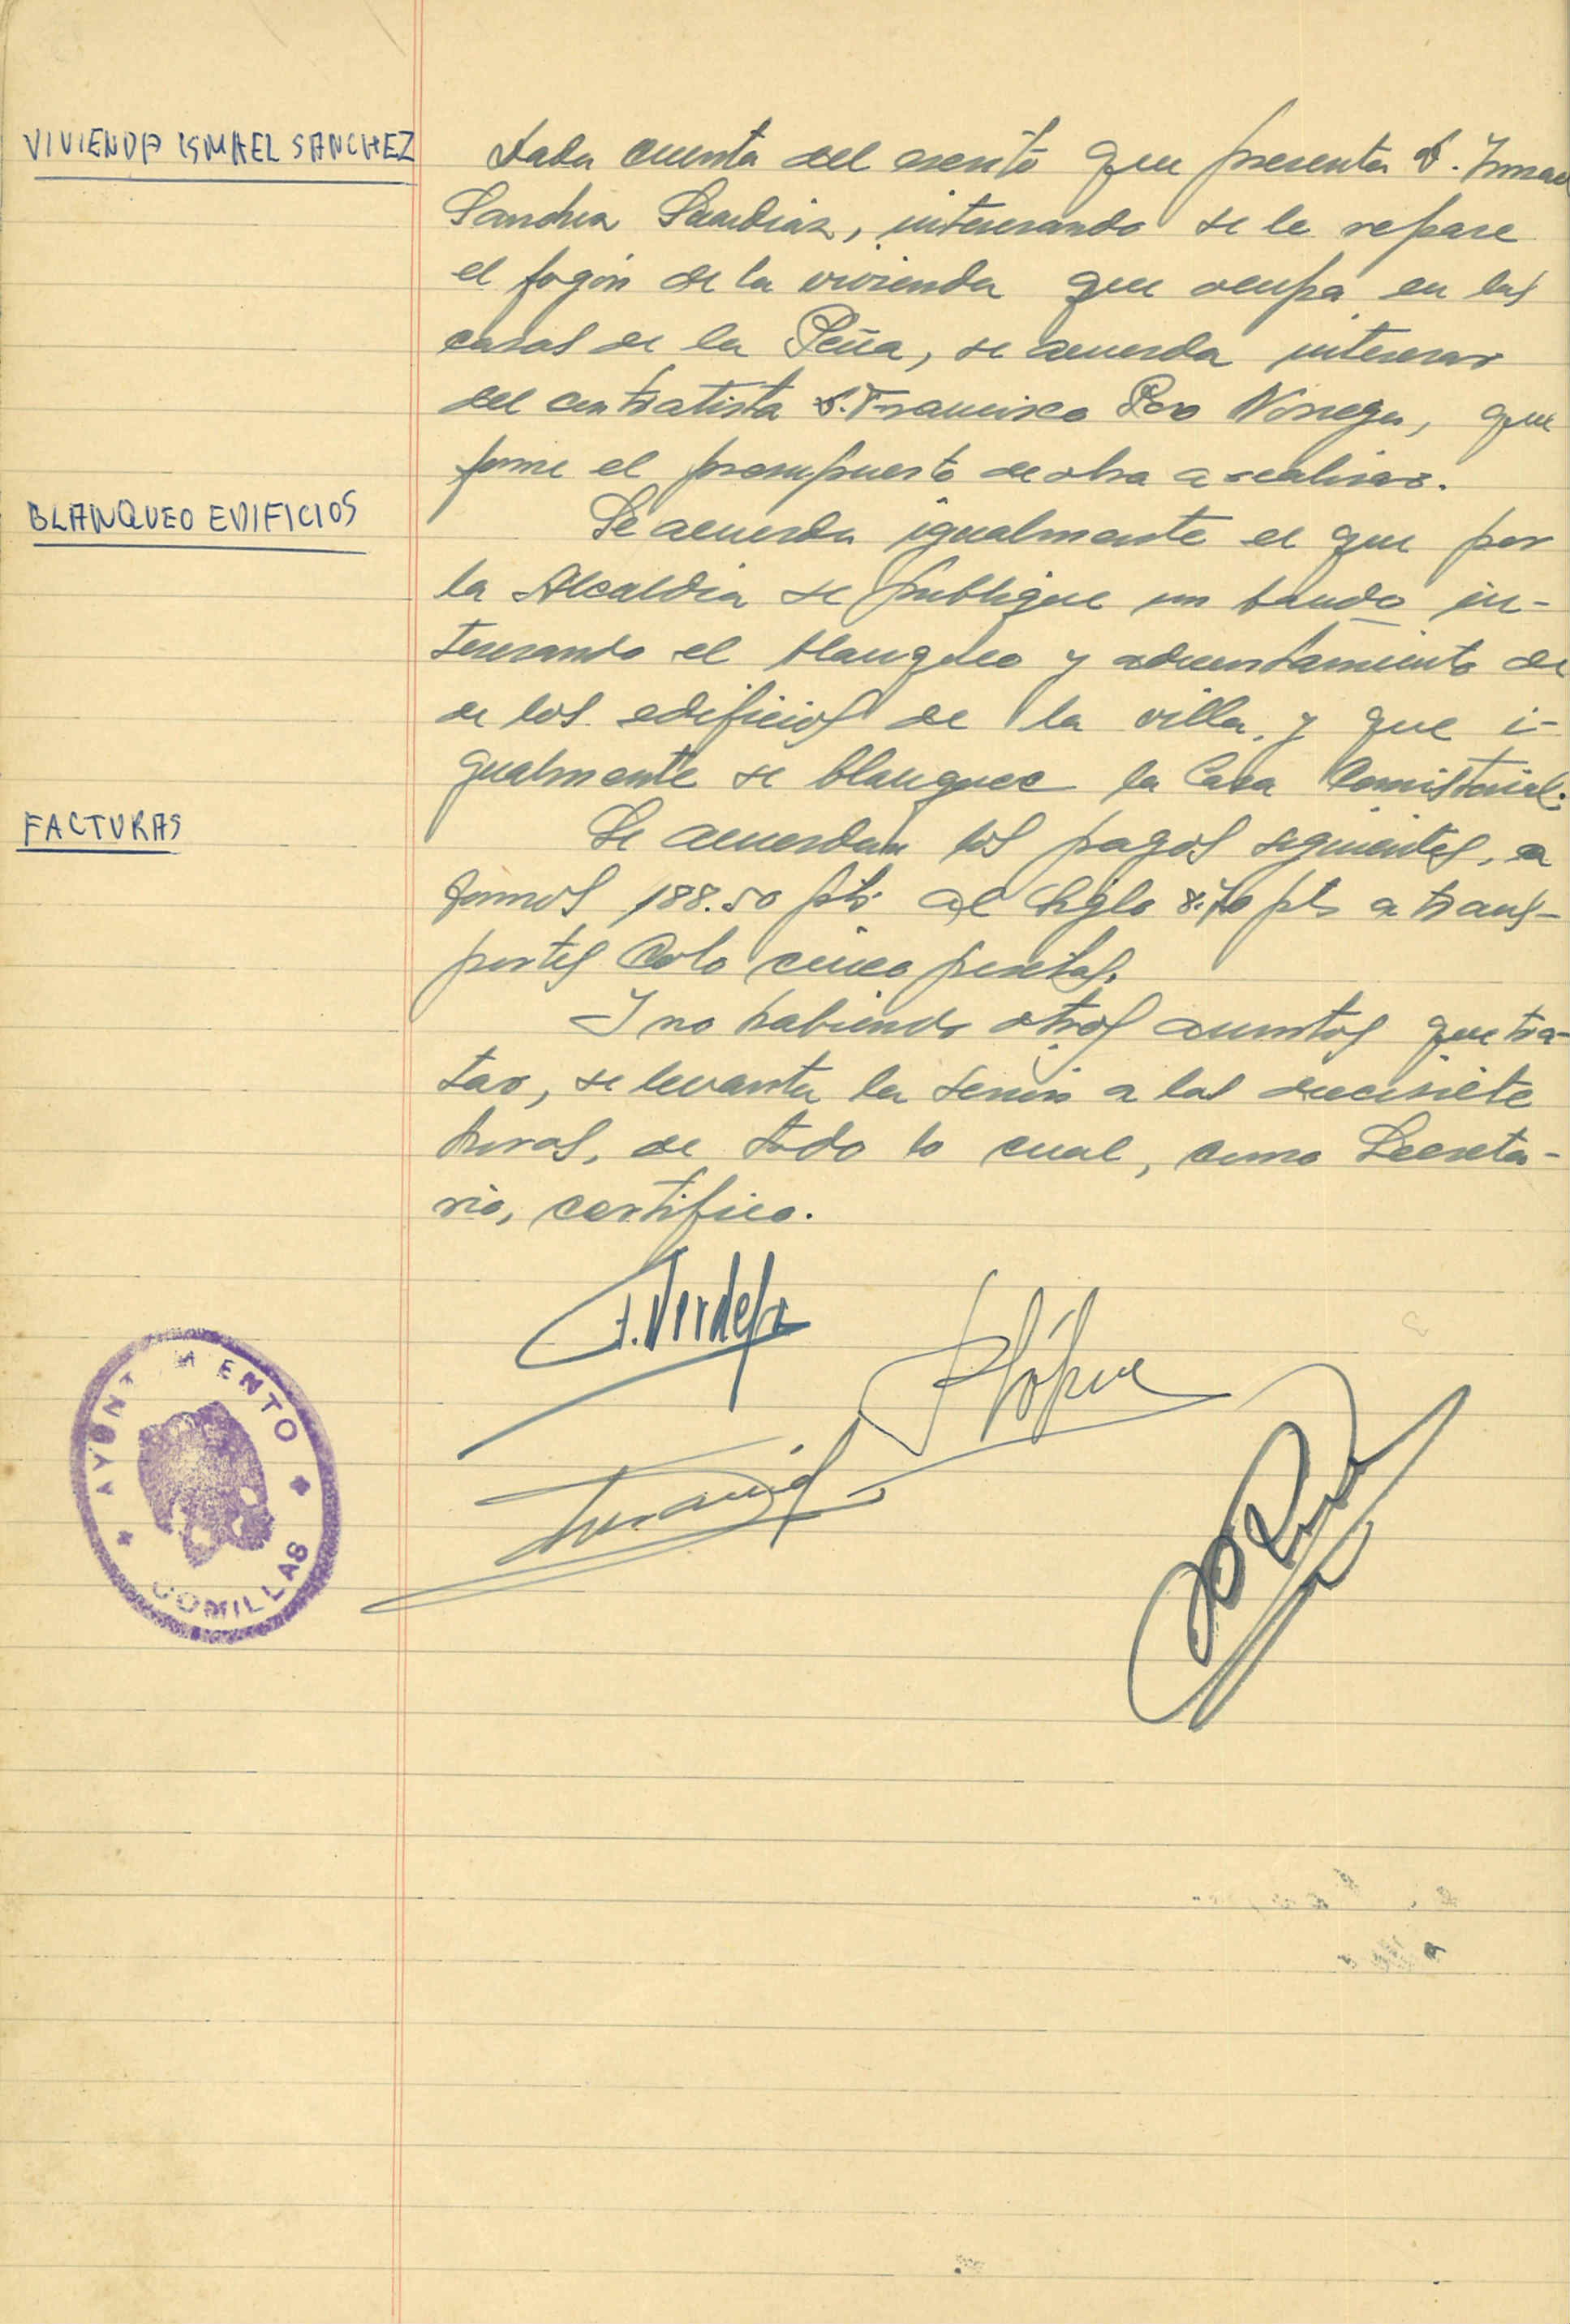 VIVIENDA ISMAEL SANCHEZ
Dada cuenta del escrito que presenta D. Ismael
Sanchez Saudiaz, interesando se le repare
el fogón de la vivienda que ocupa en las
casas de la Peña, se acuerda interesar
del contratista D. Francisco Poo Noriega, que
forme el presupuesto de obra a realizar.
BLANQUEO EDIFICIOS
Se acuerda igualmente el que por
la Alcaldia se publique un bando in-
teresando el blanqueo y adecentamiento de
de los edificios de la villa, y que i-
gualmente se blanquee la Casa Consistorial.
FACTURAS
Se acuerdan los pagos siguientes, a
188.50 pts al Siglo 8.70 pts a trans-
portes cinco pesetas.
Y no habiendo otros asuntos que tra-
tar, se levanta la sesión a las diecisiete
horas, de todo lo cual, como Secreta-
rio, certifico.
López
AYUNTAMIENTO
COMILLAS